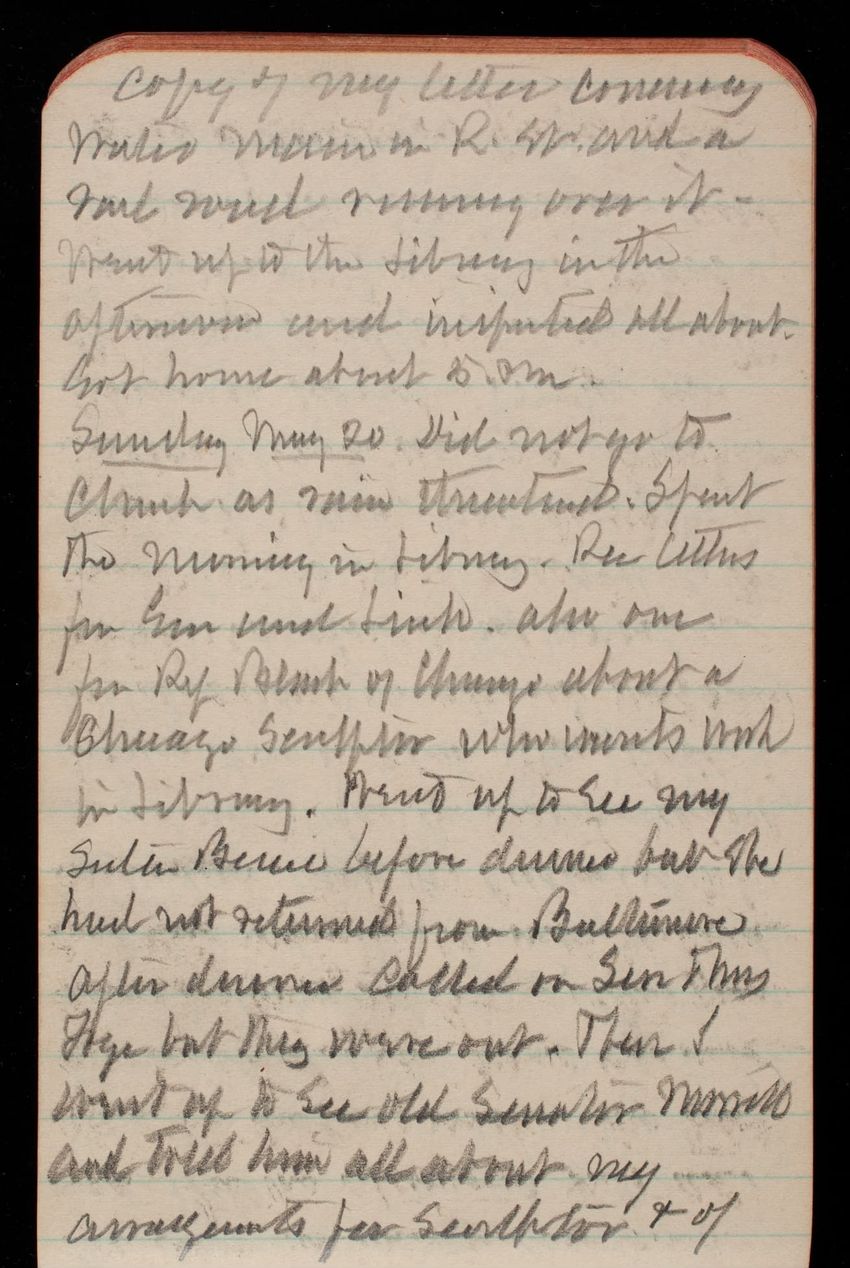 copy of my letter concerning
Water main in R. St. and a
rail road running over it -
Went up to the Library in the
afternoon and inspected all about.
Got home about 5. Pm.
Sunday May 20. Did not go to
Church as rain threatened. Spent
the morning in Library. Rec letters
from Gen and also one
from Rep of Chicago about a
Chicago Sculptor who wants work
in Library. Went up to see my
Sister before dinner but She
had not returned from Baltimore
After dinner Called on Gen &
but they were out. Then I
went up to See old Senator Morrill
and told him all about my
arrangements for Sculptor & of